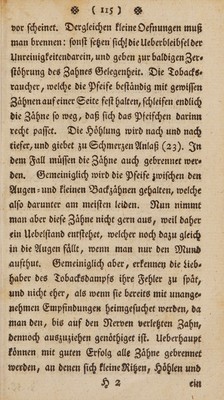 ( 115 )
vor scheinet. Dergleichen kleine Oefnungen muß
man brennen: sonst setzen sich die Ueberbleibsel der
Unreinigkeiten darein, und geben zur baldigen Zer-
störung des Zahnes Gelegenheit. Die Tobacks-
raucher, welche die Pfeife beständig mit gewissen
Zähnen auf einer Seite fest halten, schleifen endlich
die Zähne so weg, daß sich das Pfeifchen darinn
recht passet. Die Höhlung wird nach und nach
tiefer, und giebet zu Schmerzen Anlaß (23). In
dem Fall müssen die Zähne auch gebrennet wer-
den. Gemeiniglich wird die Pfeife zwischen den
Augen- und kleinen Backzähnen gehalten, welche
also darunter am meisten leiden. Nun nimmt
man aber diese Zähne nicht gern aus, weil daher
ein Uebelstand entstehet, da diese Oefnung doch gleich
in die Augen fällt, wenn man nur den Mund
aufthut. Gemeiniglich aber, erkennen die Lieb-
haber des Tobacksdampfs ihre Fehler zu spät,
und nicht eher, als wenn sie bereits mit unange-
nehmen Empfindungen heimgesuchet werden, da
man den, bis auf den Nerven verletzten Zahn,
dennoch auszuziehen genöthiget ist. Ueberhaupt
können mit guten Erfolg alle Zähne gebrennet
werden, an denen sich kleine Ritzen, Höhlen und
H 2
ein